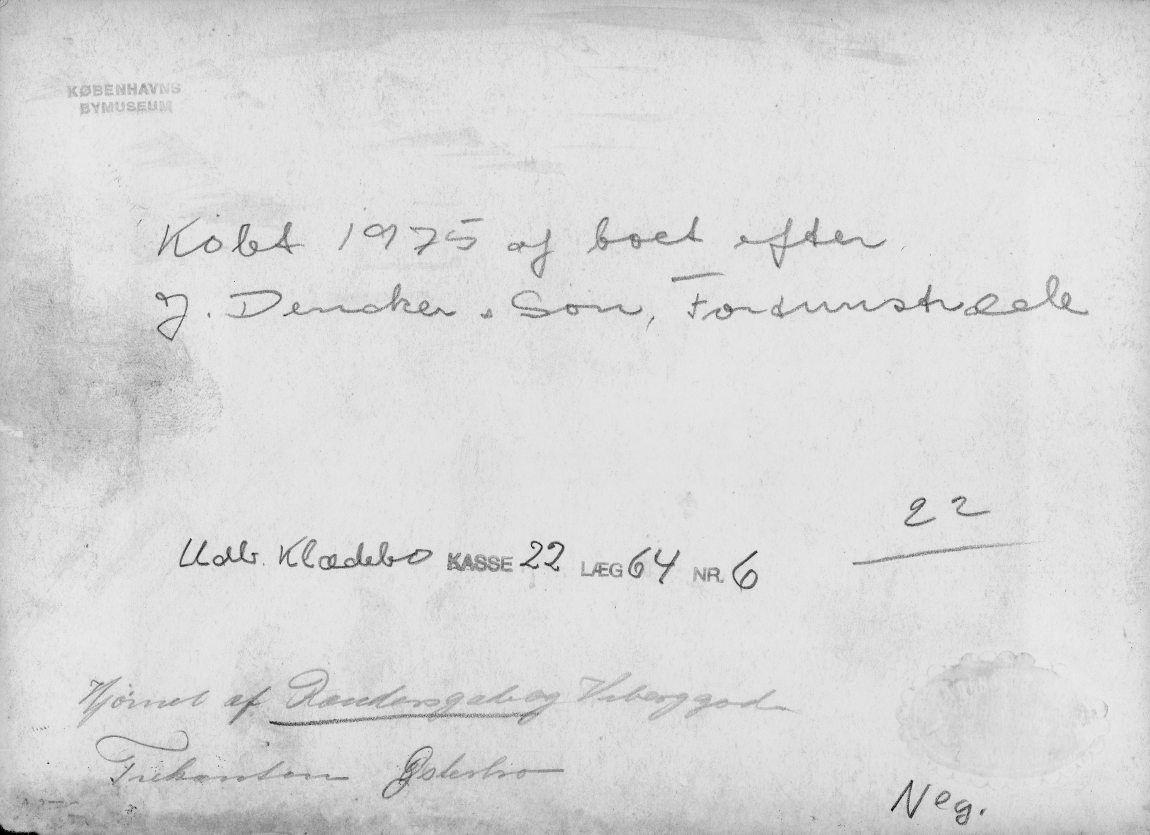 KØBENHAVNS
BYMUSEUM
Købt 1975 af boet efter
J. Dencker & Søn, Fortunstræde
22
Udb. Klædebo KASSE 22 LÆG 64 NR. 6
Hjørnet af Randersgade og Viborggade
Trekanten Østerbro
Neg.